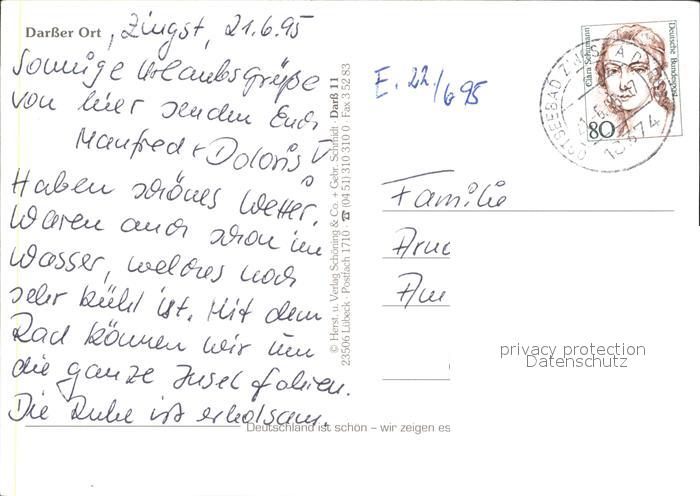 Darßer Ort , Zingst, 21.6.95
Sonnige Urlaubsgrüße
von hier senden Euch
Manfred + Doloris
Haben schönes Wetter.
Waren auch schon im
Wasser, welches noch
sehr kühl ist. Mit dem
Rad können wir um
die ganze Insel fahren.
Die Ruhe ist erholsam.
© Herst. u. Verlag Schöning & Co. + Gebr. Schmidt · Darß 11
23506 Lübeck · Postfach 1710 · ☎ (04 51) 310 310 0 · Fax 3 52 83
E. 22/6 95
Clara Schumann
Deutsche Bundespost
80
OSTSEEBAD ZINGST
18374
Familie
privacy protection
Datenschutz
Deutschland ist schön – wir zeigen es